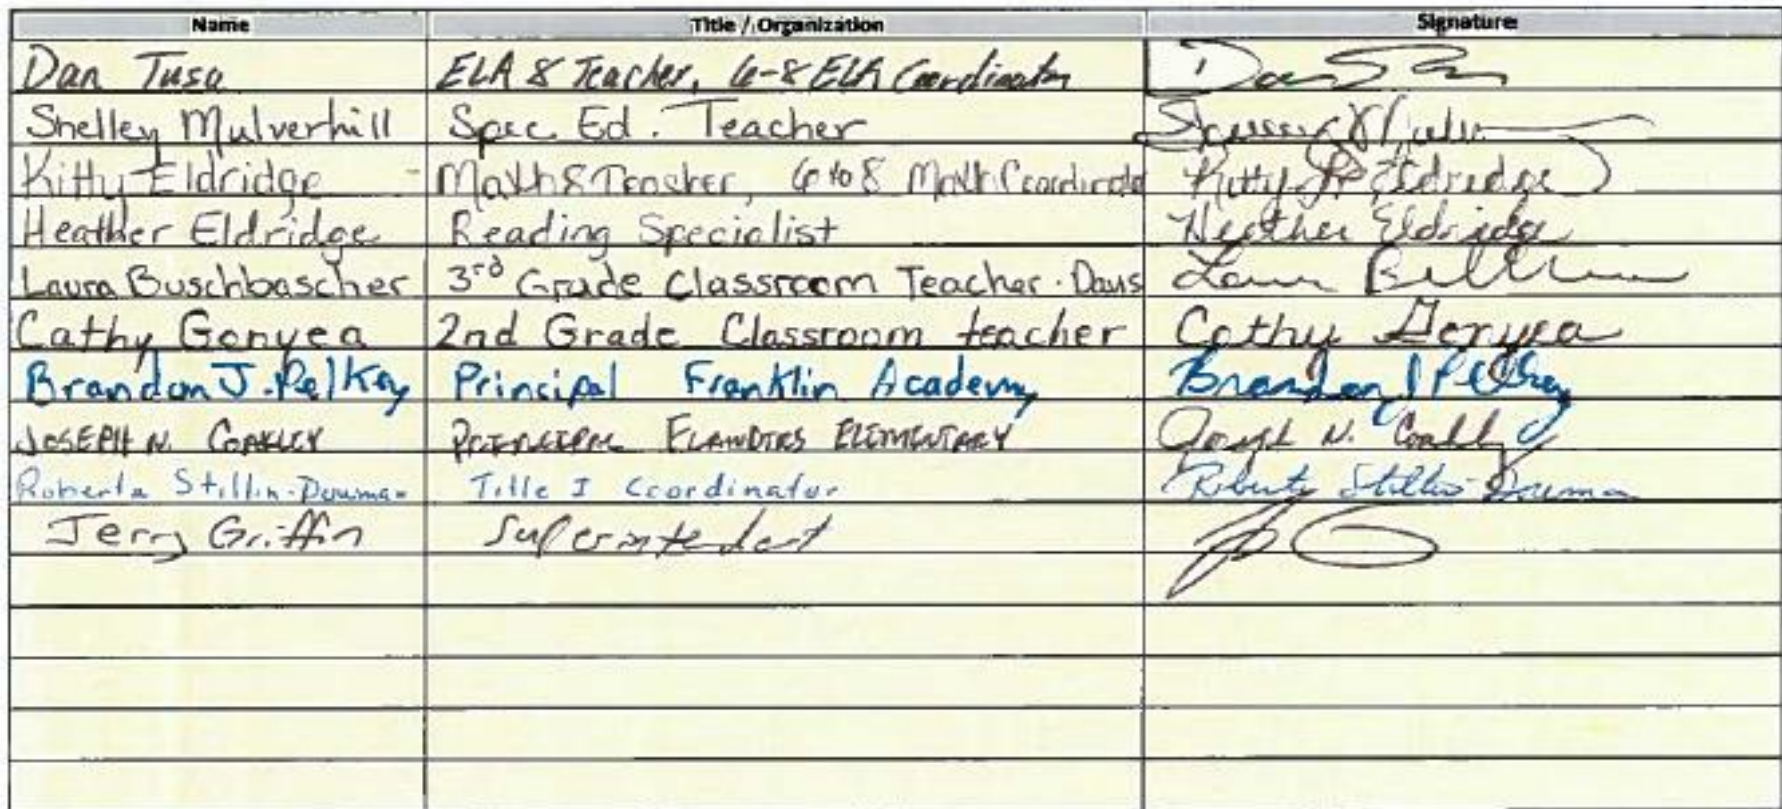 Name Title / Organization Signature
Dan Tusa ELA 8 Teacher, 6-8 ELA Coordinator Dan
Shelley Mulverhill Spec Ed. Teacher
Kitty Eldridge Math 8 Teacher, 6 to 8 Math Coordinato Kitty Eldridge
Heather Eldridge Reading Specialist Heather Eldridge
Laura Buschbascher 3rd Grade Classroom Teacher. Davis Laura
Cathy Gonyea 2nd Grade Classroom teacher Cathy Gonyea
Brandon J. Pelkey Principal Franklin Academy Brandon J Pelkey
JOSEPH N. COAKLEY PRINCIPAL FLANDERS ELEMENTARY Joseph N. Coakley
Roberta Stillin-Dowman Title I Coordinator Roberta Stillin-Dowman
Jerry Griffin Superintendent